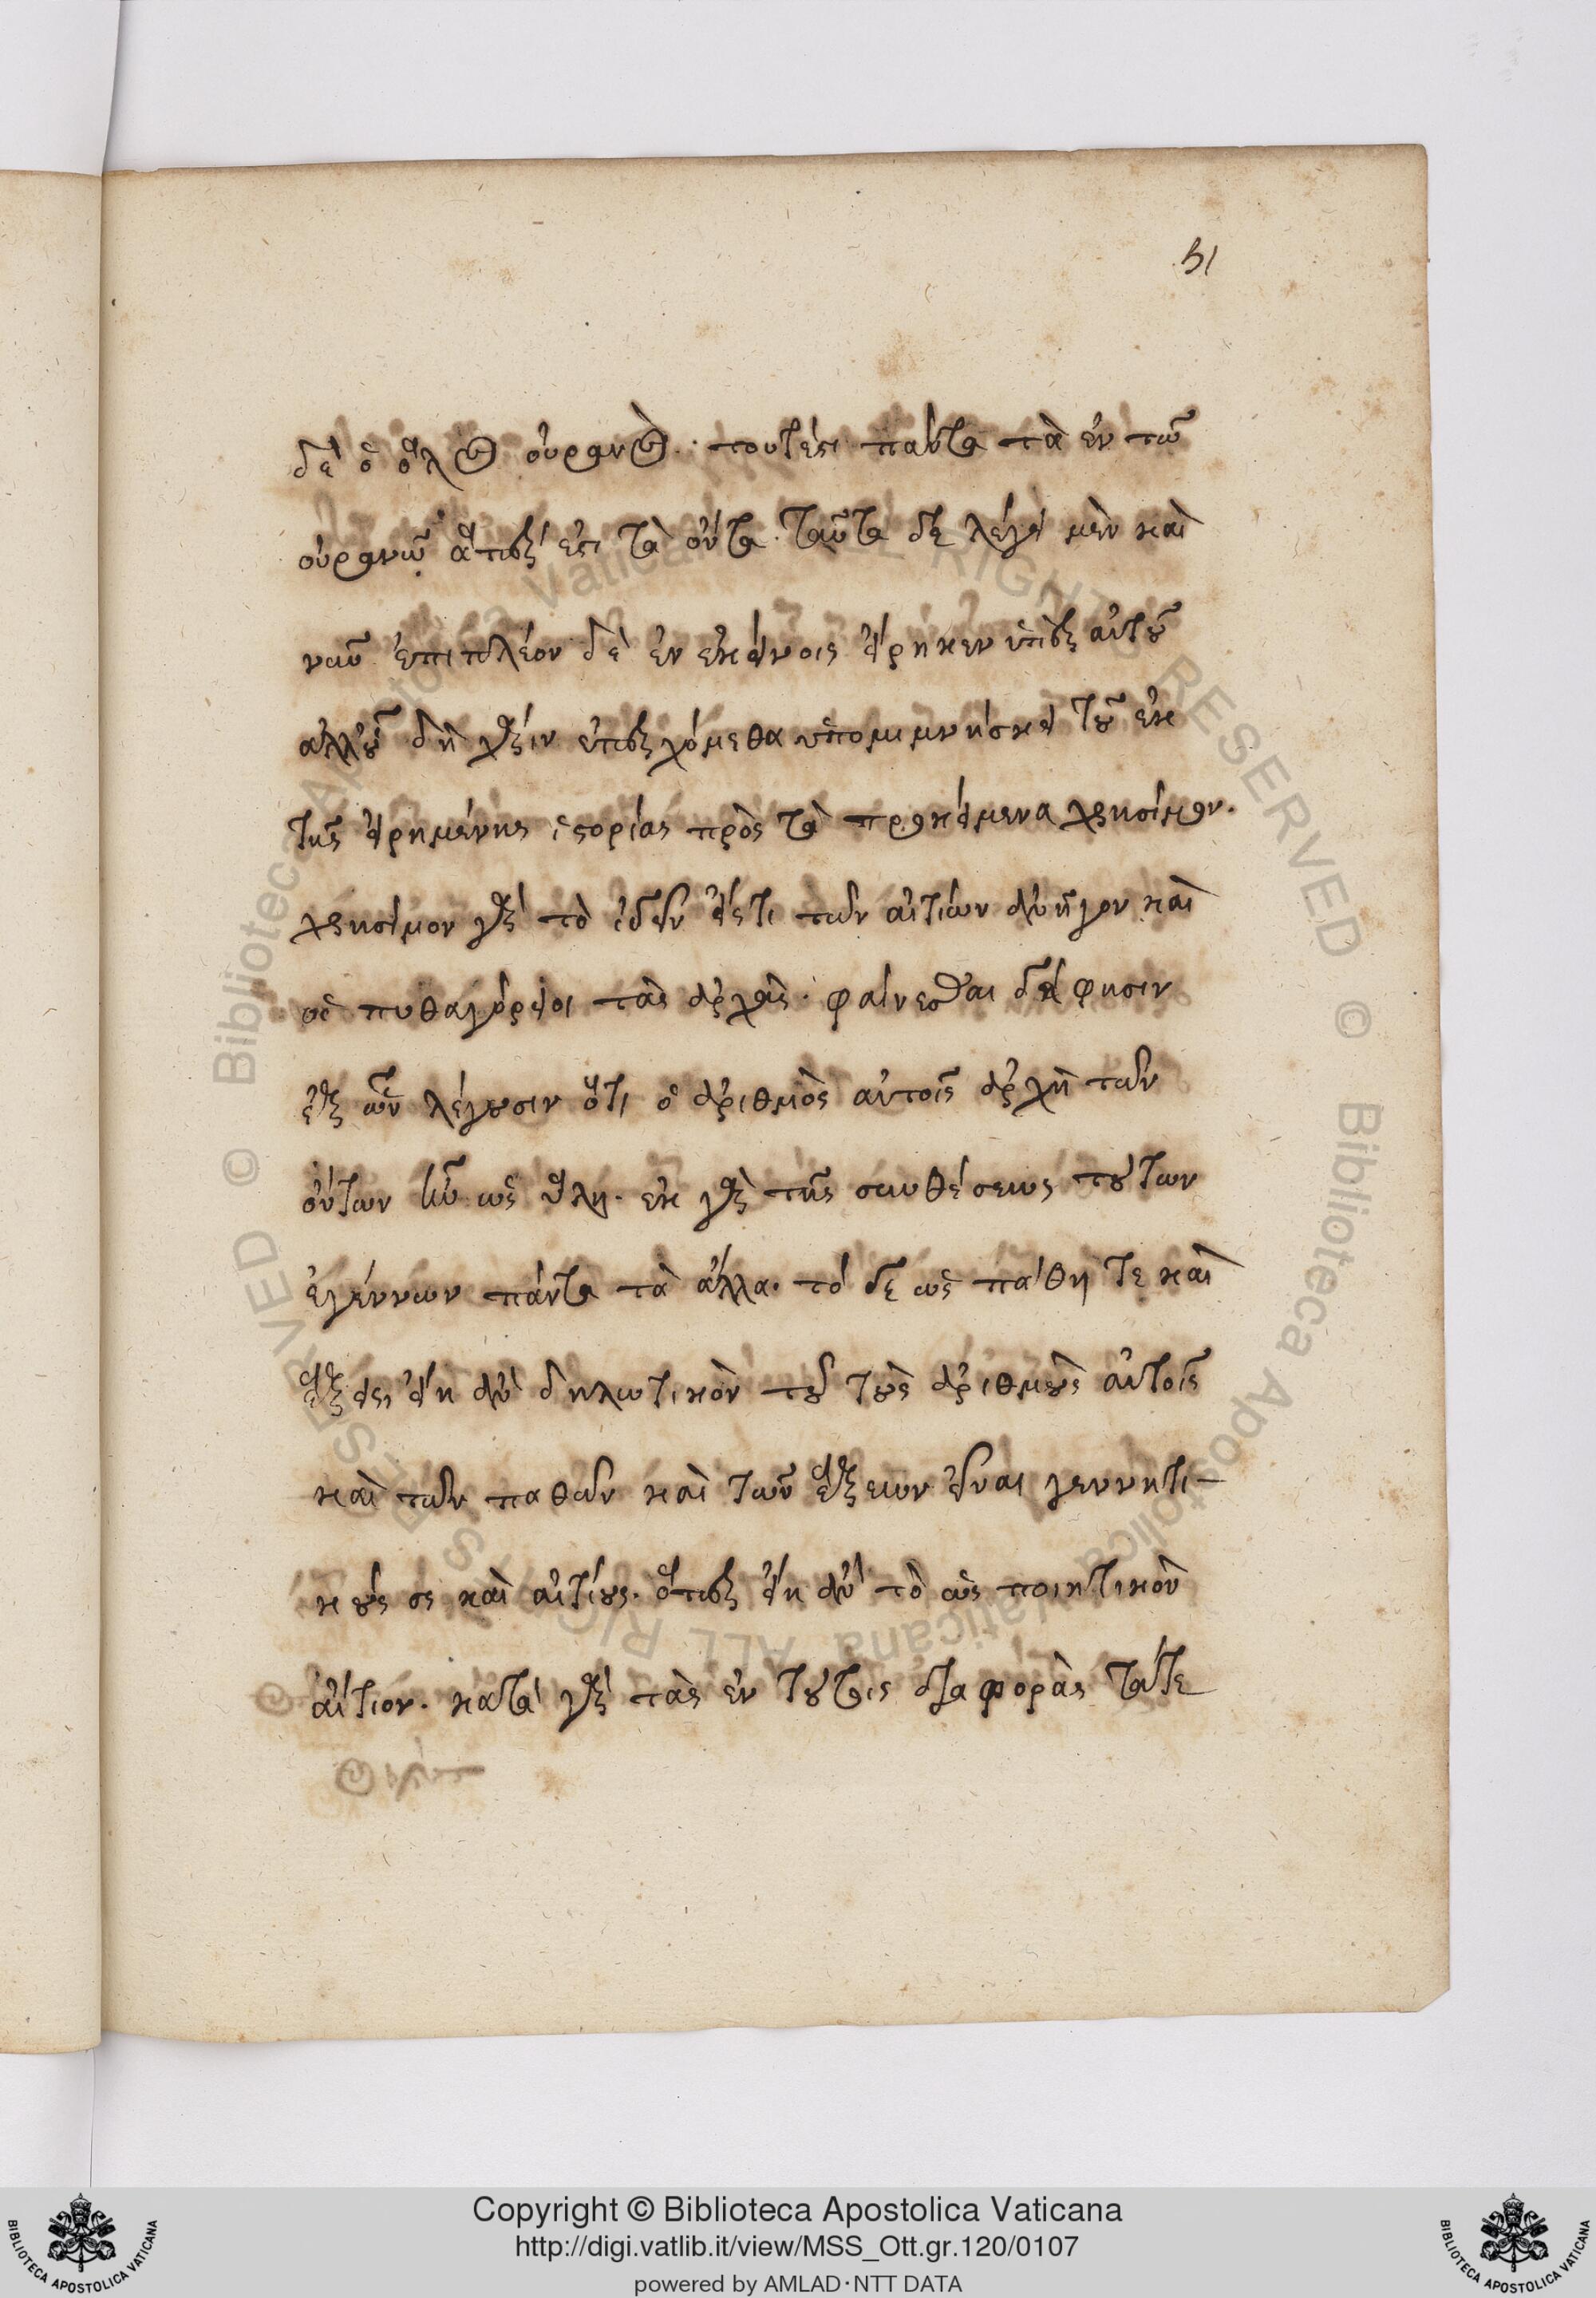 51
δὲ ὁ ὅλος οὐρανὸς. τουτέστι πάντα τὰ ἐν τῷ
οὐρανῷ ἅπερ ἐστὶ τὰ ὄντα. ταῦτα δὲ λέγει μὲν καὶ
νῦν ἐπιπλέον δὲ ἐν ἐκείνοις εἴρηκεν ὑπὲρ αὐτοῦ
ἀλλ' οὗ δὴ χάριν ἐπερχόμεθα ὑπομιμνήσκει τοῦ ἐκ
τῆς εἰρημένης ἱστορίας πρὸς τὰ προκείμενα χρησίμου.
χρησίμον γὰρ τὸ ἰδεῖν εἰς τί τῶν αἰτίων ἀνῆγον καὶ
οἱ πυθαγόρειοι τὰς ἀρχάς. φαίνεσθαι δή φησιν
ἐξ ὧν λέγουσιν ὅτι ὁ ἀριθμὸς αὐτοῖς ἀρχὴ τῶν
ὄντων ἦν ὡς ὕλη. ἐκ γὰρ τῆς συνθέσεως τούτων
ἐγέννων πάντα τὰ ἄλλα. τὸ δὲ ὡς πάθη τε καὶ
ἕξεις εἴη ἂν δηλωτικὸν τοῦ τοὺς ἀριθμοὺς αὐτοῖς
καὶ τῶν παθῶν καὶ τῶν ἕξεων εἶναι γεννητι-
κούς τε καὶ αἰτίους. ὅπερ εἴη ἂν τὸ ὡς ποιητικὸν
αἴτιον. κατὰ γὰρ τὰς ἐν τούτοις διαφορὰς τά τε
Copyright © Biblioteca Apostolica Vaticana
http://digi.vatlib.it/view/MSS_Ott.gr.120/0107
powered by AMLAD·NTT DATA
BIBLIOTECA APOSTOLICA VATICANA
BIBLIOTECA APOSTOLICA VATICANA
© Biblioteca Apostolica Vaticana ALL RIGHTS RESERVED
© Biblioteca Apostolica Vaticana ALL RIGHTS RESERVED